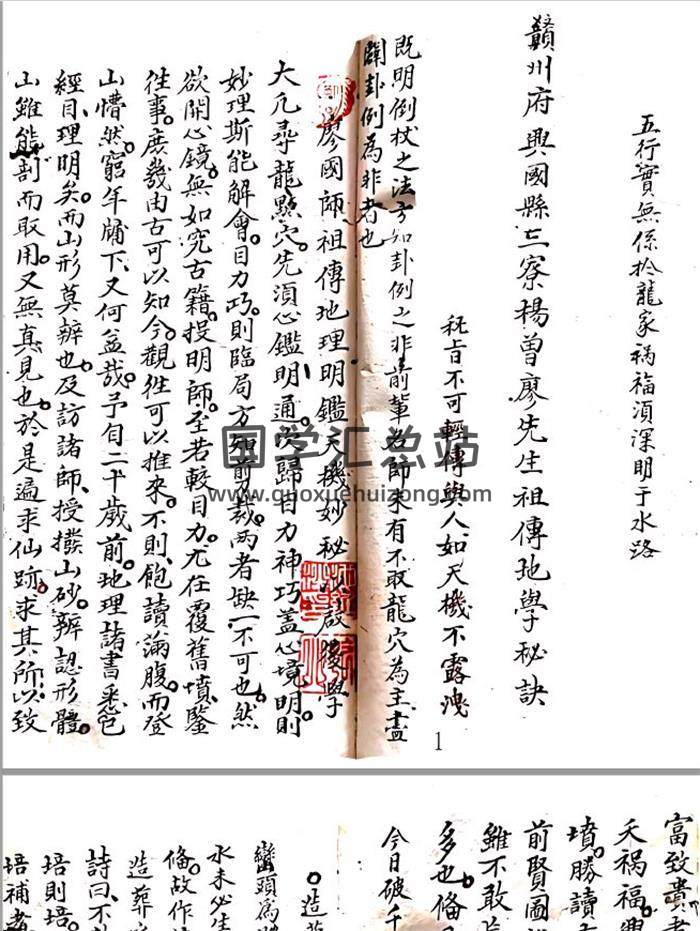 五行實無係於龍家禍福須深明于水路
贛州府興國縣三寮楊曾廖先生祖傳地學秘訣
秘旨不可輕傳與人如天機不露洩
既明倒杖之法方知卦例之非前輩名師未有不取龍穴為主盡
闢卦例為非者也
廖國師祖傳地理明鑑天機妙秘
大凡尋龍點穴。先須心鑑明通。次歸目力神巧。蓋心境明則
妙理斯能解會。目力巧。則臨局方知剪裁。两者缺一不可也。然
欲開心鏡。無如究古籍。授明師。至若較目力。尤在覆舊墳。鑒
往事。庶幾由古可以知今。觀往可以推來。不則飽讀滿腹。而登
山懵然。窮年牖下。又何益哉。予自二十歲前。地理諸書悉包
經目。理明矣。而山形莫辨也。及訪諸師、授撥山砂。辨認形體。
山雖能剖而取用。又無真見也。於是遍求仙跡。求其所以致
1
国学汇总站
www.guoxuehuizong.com
富致貴者
夭禍福。興
墳勝讀
前賢圖
雖不敢
多也。俻
今日破千
造葬
巒頭為
水未必生
俻。故作
造葬
詩曰。不
培則培。
培補者